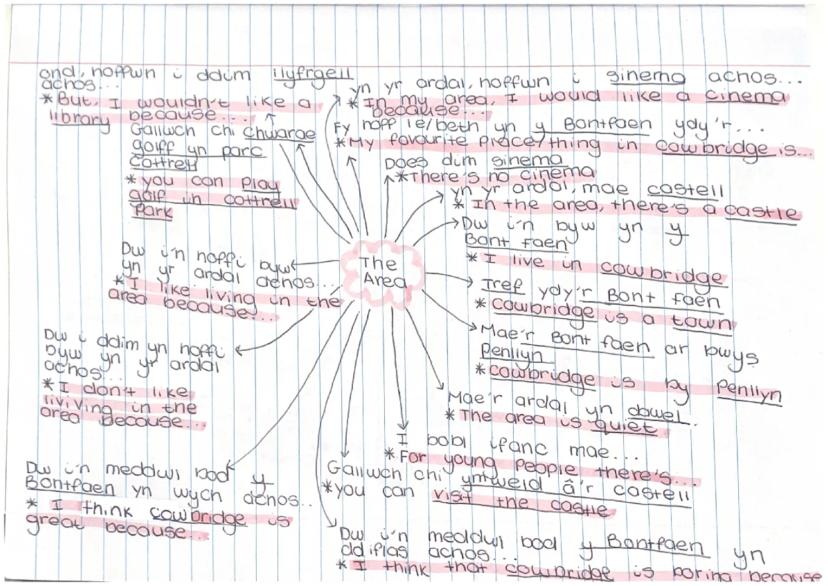 ond, hoffwn i ddim llyfrgell
achos...
*But, I wouldn't like a
library because...
Gallwch chi chwarae
golff yn parc
cottrell
*you can play
golf in cottrell
Park
Dw i'n hoffi byw
yn yr ardal achos...
*I like living in the
area because...
Dw i ddim yn hoffi
byw yn yr ardal
achos...
*I don't like
liviving in the
area because...
Dw i'n meddwl bod y
Bontfaen yn wych achos...
* I think cowbridge is
great because...
The
Area
yn yr ardal, hoffwn i sinema achos...
*In my area, I would like a cinema
because...
Fy hoff le/beth yn y Bontfaen ydy'r...
*My favourite place/thing in cowbridge is...
Does dim sinema
*There's no cinema
yn yr ardal, mae castell
* In the area, there's a castle
Dw i'n byw yn y
Bont faen
* I live in cowbridge
Tref ydy'r Bont faen
*cowbridge is a town
Mae'r Bont faen ar bwys
Penllyn
*cowbridge is by Penllyn
Mae'r ardal yn dawel.
*The area is quiet
I bobl ifanc mae...
*For young people there's...
Gallwch chi ymweld â'r castell
*you can visit the castle
Dw i'n meddwl bod y Bontfaen yn
ddiflas achos...
*I think that cowbridge is boring because